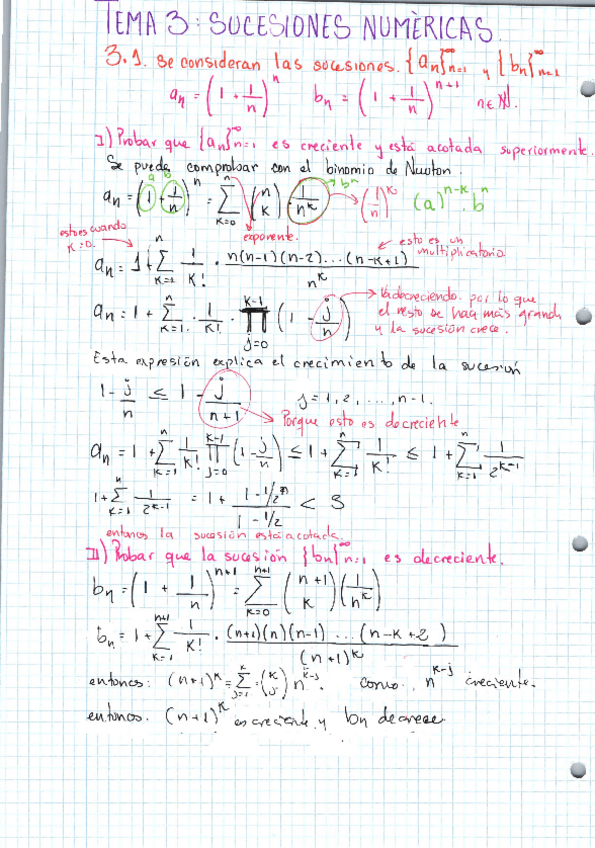 TEMA 3: SUCESIONES NUMÈRICAS.
3.1. Se consideran las sucesiones. {a_n}^∞_{n=1} y {b_n}^∞_{n=1}
a_n = (1 + 1/n)^n   b_n = (1 + 1/n)^{n+1}   n∈N.
I) Probar que {a_n}^∞_{n=1} es creciente y está acotada superiormente.
Se puede comprobar con el binomio de Newton.
a b
a_n = (1 + 1/n)^n = Σ_{k=0}^n (n k) · 1/n^k → b^n (1/n)^k (a)^{n-k} · b^n
exponente.
esto es cuando k=0.
esto es un multiplicatorio
a_n = 1 + Σ_{k=1}^n 1/k! · n(n-1)(n-2)...(n-k+1) / n^k
a_n = 1 + Σ_{k=1}^n · 1/k! · ∏_{j=0}^{k-1} (1 - j/n)
Va decreciendo. por lo que
el resto se hace más grande
y la sucesión crece.
Esta expresión explica el crecimiento de la sucesión
1 - j/n ≤ 1 - j/(n+1)   j = 1, 2, ..., n-1.
Porque esto es decreciente
a_n = 1 + Σ_{k=1}^n 1/k! ∏_{j=0}^{k-1} (1 - j/n) ≤ 1 + Σ_{k=1}^n 1/k! ≤ 1 + Σ_{k=1}^n 1/2^{k-1}
1 + Σ_{k=1}^n 1/2^{k-1} = 1 + (1 - 1/2^n)/(1 - 1/2) < 3
entonces la sucesión está acotada.
II) Probar que la sucesión {b_n}^∞_{n=1} es decreciente.
b_n = (1 + 1/n)^{n+1} = Σ_{k=0}^{n+1} (n+1 k) (1/n^k)
b_n = 1 + Σ_{k=1}^{n+1} 1/k! · (n+1)(n)(n-1)...(n-k+2) / (n+1)^k
entonces: (n+1)^k = Σ_{j=1}^k · (k j) n^{k-j}. como. n^{k-j} creciente.
entonces. (n+1)^k es creciente y bn decrece